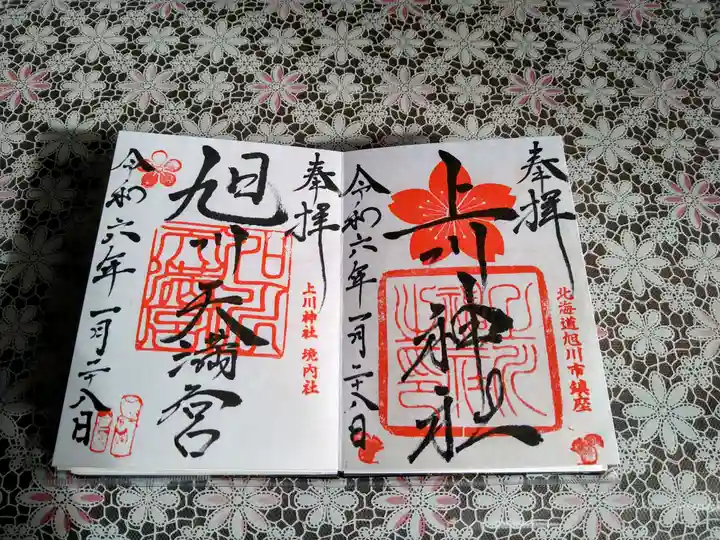 奉拝
上川神社
北海道旭川市鎮座
令和六年一月二十八日
奉拝
旭川天満宮
上川神社 境内社
令和六年一月二十八日